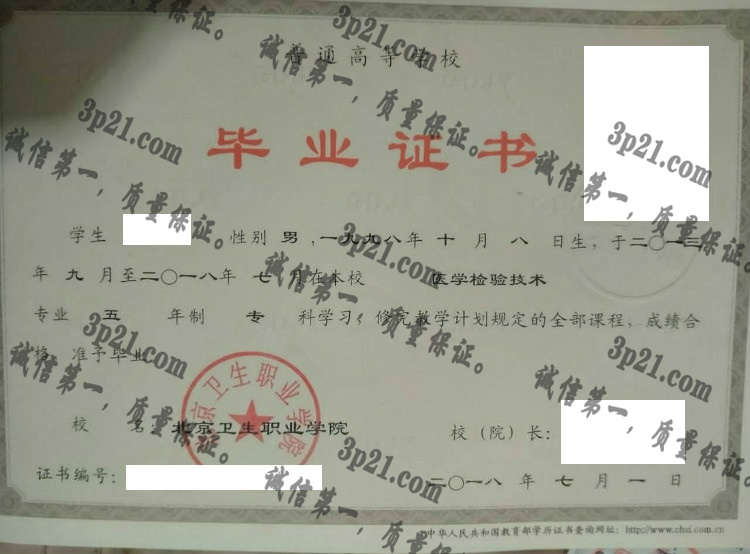 普通高等学校
毕业证书
学生 性别 男，一九九八年 十 月 八 日生，于二〇一三
年 九 月至二〇一八年 七 月在本校 医学检验技术
专业 五 年制 专 科学习，修完教学计划规定的全部课程，成绩合
格，准予毕业。
校 名：北京卫生职业学院 校（院）长：
证书编号： 二〇一八 年 七 月 一 日
中华人民共和国教育部学历证书查询网址：http://www.chsi.com.cn
北京卫生职业学院
3p21.com
诚信第一，质量保证。
3p21.com
诚信第一，质量保证。
3p21.com
诚信第一，质量保证。
3p21.com
诚信第一，质量保证。
3p21.com
诚信第一，质量保证。
3p21.com
诚信第一，质量保证。
3p21.com
诚信第一，质量保证。